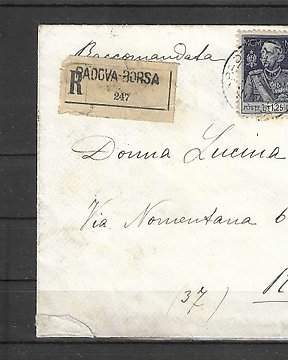 Raccomandata
R PADOVA-BORSA
247
POSTE ITALIANE L.1,25
Donna Lucina
Via Nomentana 6
R
(37)